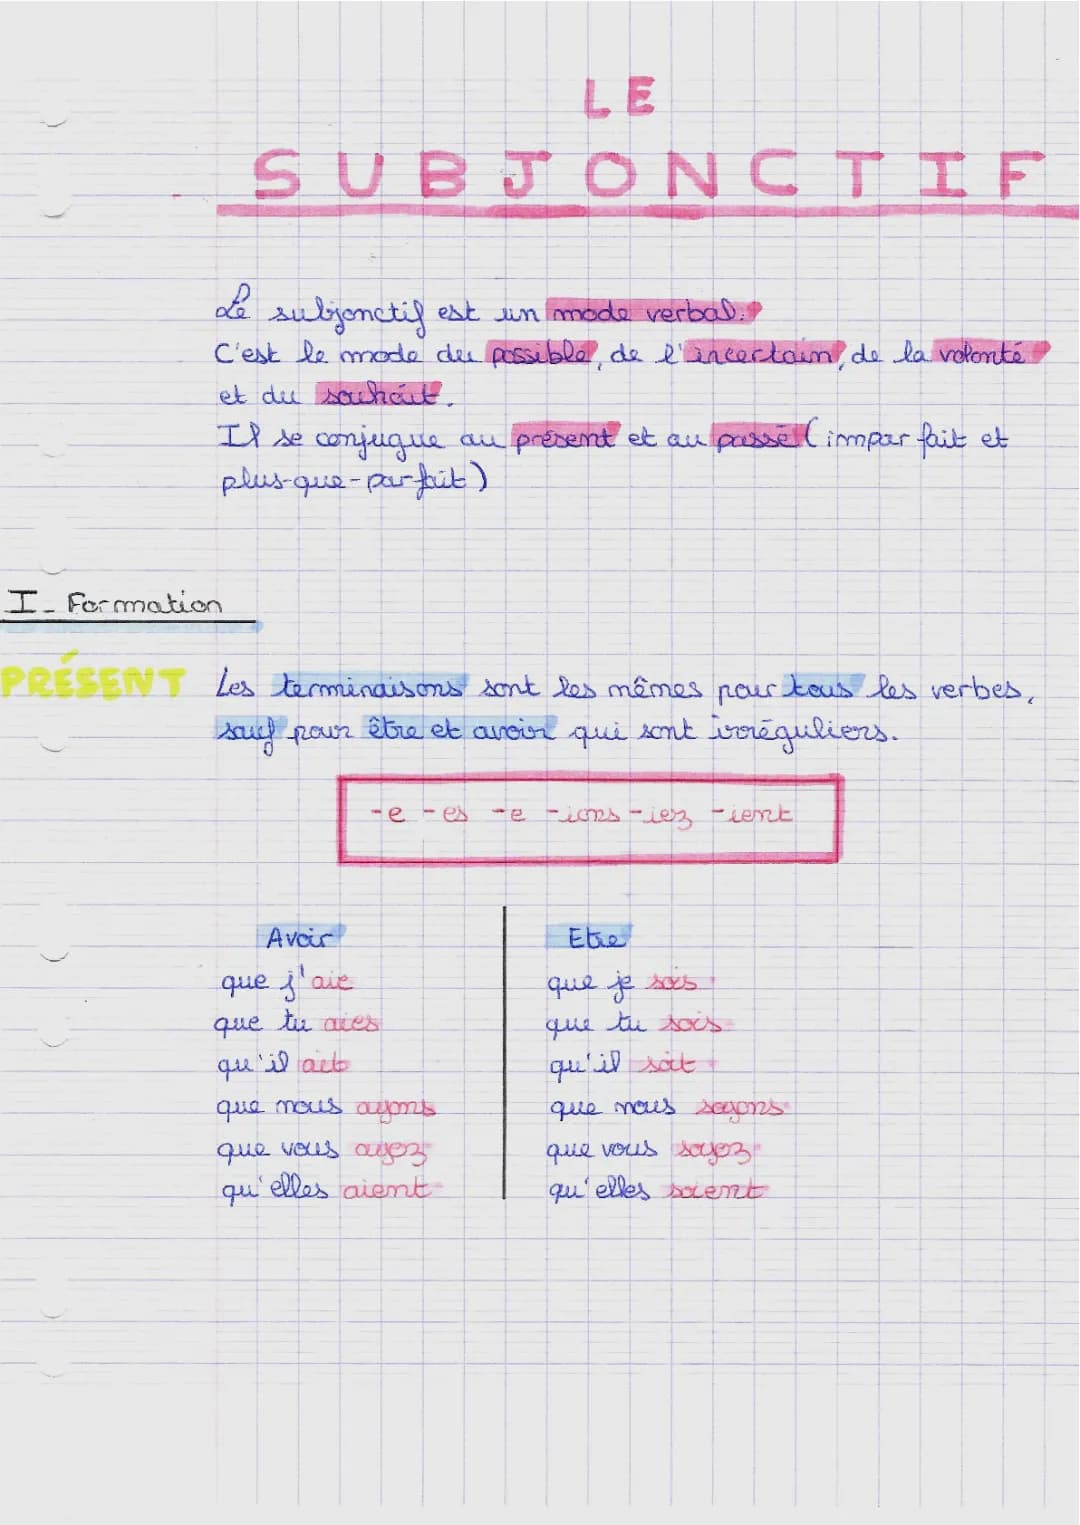 LE
SUBJONCTIF
Le subjonctif est un mode verbal.
C'est le mode du possible, de l'incertain, de la volonté
et du souhait.
Il se conjugue au présent et au passé (imparfait et
plus-que-parfait)
I - Formation
PRÉSENT Les terminaisons sont les mêmes pour tous les verbes,
sauf pour être et avoir qui sont irréguliers.
-e -es -e -ions -iez -ient
Avoir Etre
que j'aie que je sois
que tu aies que tu sois
qu'il ait qu'il soit
que nous ayons que nous soyons
que vous ayez que vous soyez
qu'elles aient qu'elles soient